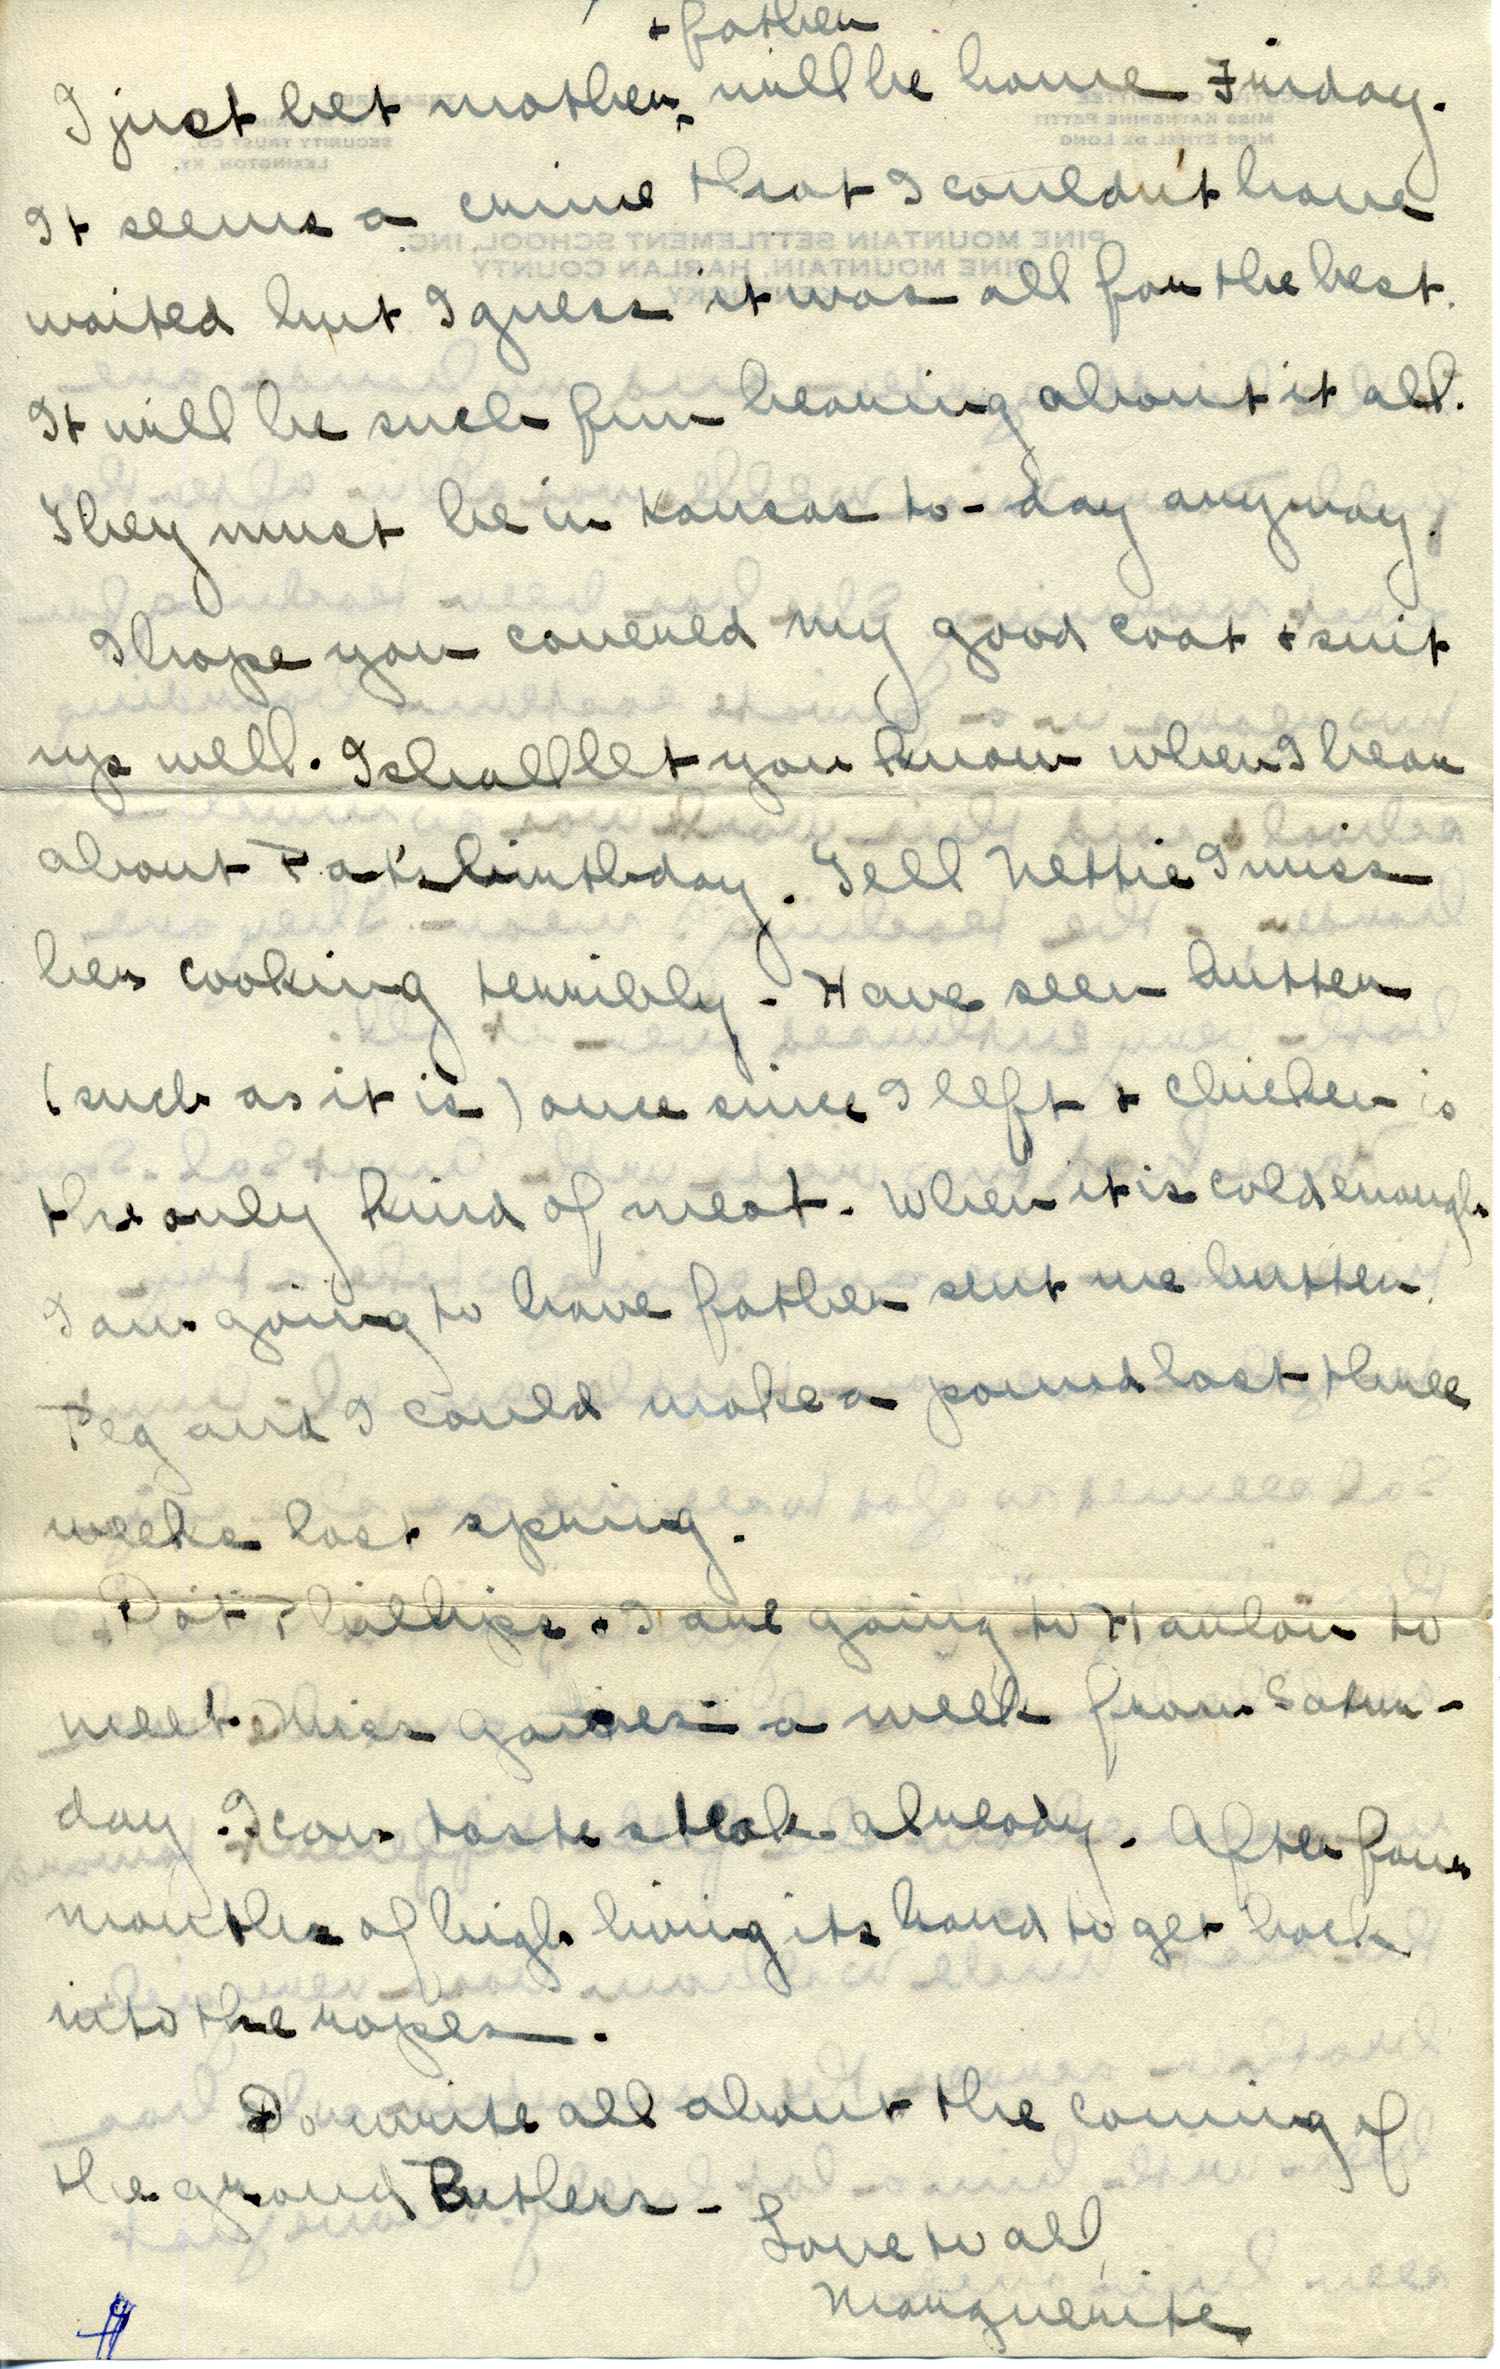 I just bet mother + father will be home Friday.
It seems a crime that I couldn't have
waited but I guess it was all for the best.
It will be such fun hearing about it all.
They must be in Kansas to-day anyway.
I hope you covered my good coat + suit
up well. I shall let you know when I hear
about Pat's birthday. Tell Nettie I miss
her cooking terribly - Have seen butter
(such as it is) once since I left + chicken is
the only kind of meat. When it is cold enough
I am going to have father sent me butter.
Peg and I could make a pound last three
weeks last spring.
Dot Phillips + I are going to Harlan to
meet Miss Gaines a week from Satur-
day. I can taste steak already. After four
months of high living its hard to get back
into the ropes.
Do write all about the coming of
the grand Butlers -
Love to all
Marguerite
PINE MOUNTAIN SETTLEMENT SCHOOL, INC.
PINE MOUNTAIN, HARLAN COUNTY
MISS KATHERINE PETTIT
MISS ETHEL DE LONG
SECURITY TRUST CO.
LEXINGTON, KY.